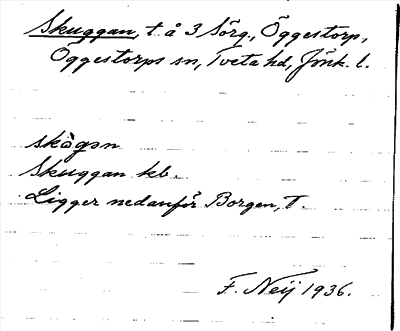 Skuggan, t. å 3 Sörg., Öggestorp,
Öggestorps sn, Tveta hd, Jönk. l.
skàgən
Skuggan kb.
Ligger nedanför Borgen, T.
F. Neij 1936.